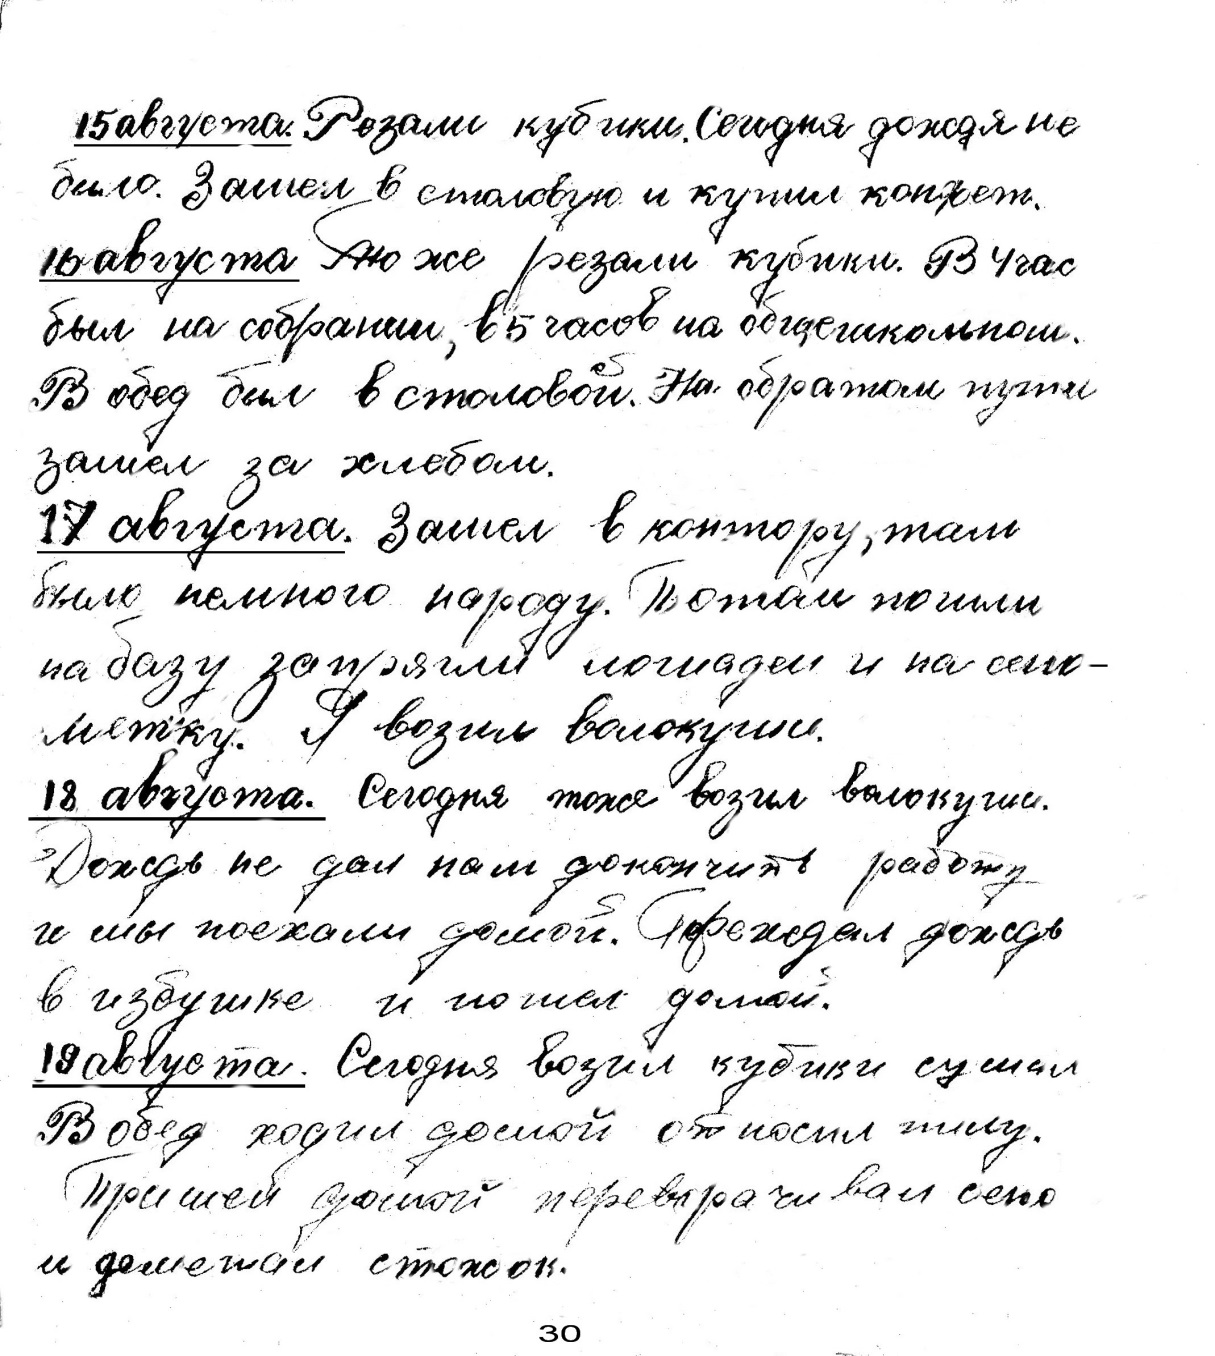 15 августа. Резали кубики. Сегодня дождя не
было. Зашел в столовую и купил конфет.
16 августа Тоже резали кубики. В 4 час
был на собрании, в 5 часов на общешкольном.
В обед был в столовой. На обратом пути
зашел за хлебом.
17 августа. Зашел в контору, там
было немного народу. Потом пошли
на базу запрягли лошадей и на сено-
метку. Я возил волокуши.
18 августа. Сегодня тоже возил волокуши.
Дождь не дал нам докончить работу
и мы поехали домой. Переждал дождь
в избушке и пошел домой.
19 августа. Сегодня возил кубики сушил
В обед ходил домой относил пилу.
Пришел домой переворачивал сено
и дометал стожок.
30